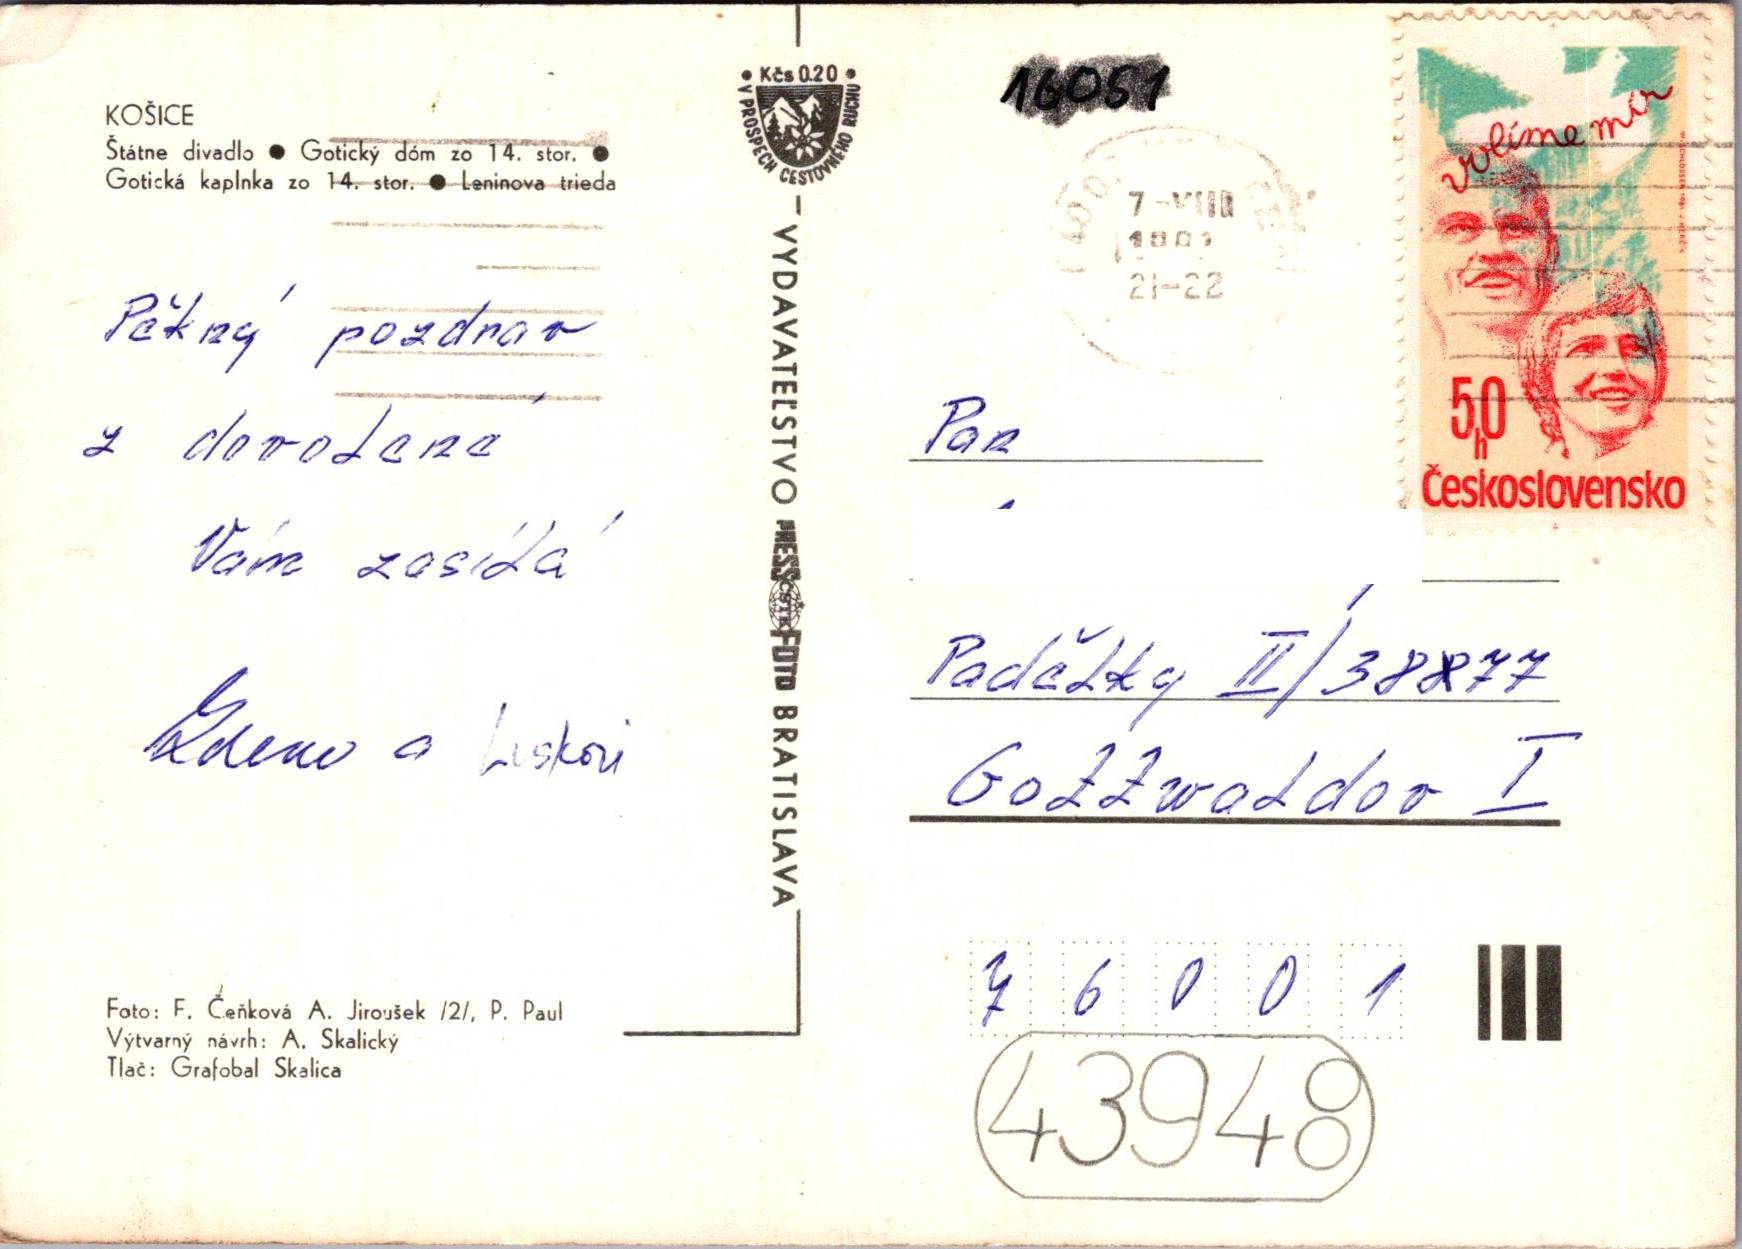 KOŠICE
Štátne divadlo ● Gotický dóm zo 14. stor. ●
Gotická kaplnka zo 14. stor. ● Leninova trieda
Pěkný pozdrav
z dovolené
Vám zasílá
Zdeno a
Foto: F. Čeňková A. Jiroušek /2/, P. Paul
Výtvarný návrh: A. Skalický
Tlač: Grafobal Skalica
• Kčs 0.20 •
V PROSPECH CESTOVNÉHO RUCHU
VYDAVATEĽSTVO PRESSFOTO BRATISLAVA
ČSTK
16051
7-VIII
21-22
volíme mír
50
h
Československo
Pan
Padělky II/3877
Gottwaldov I
76001
43948